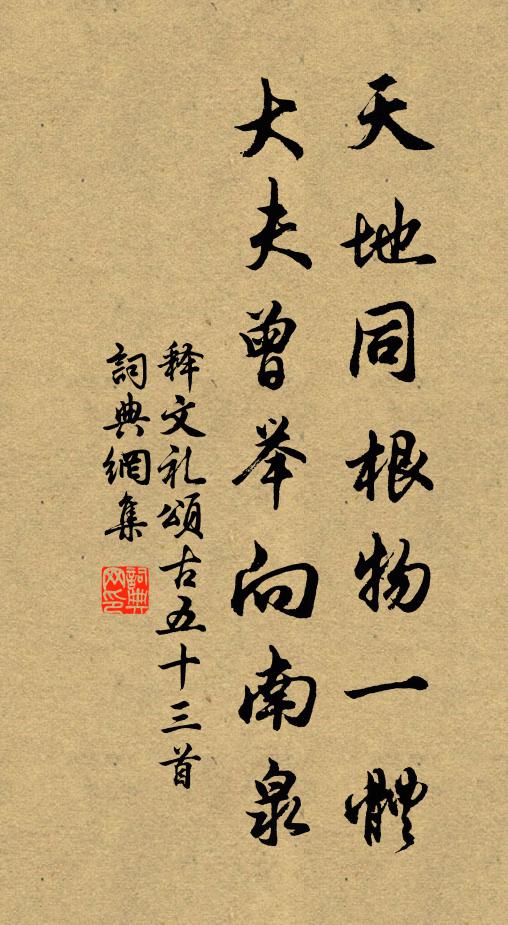 天地同根物一體
大夫曾举向南泉
释文礼頌古五十三首
詞典網集
詞典网印